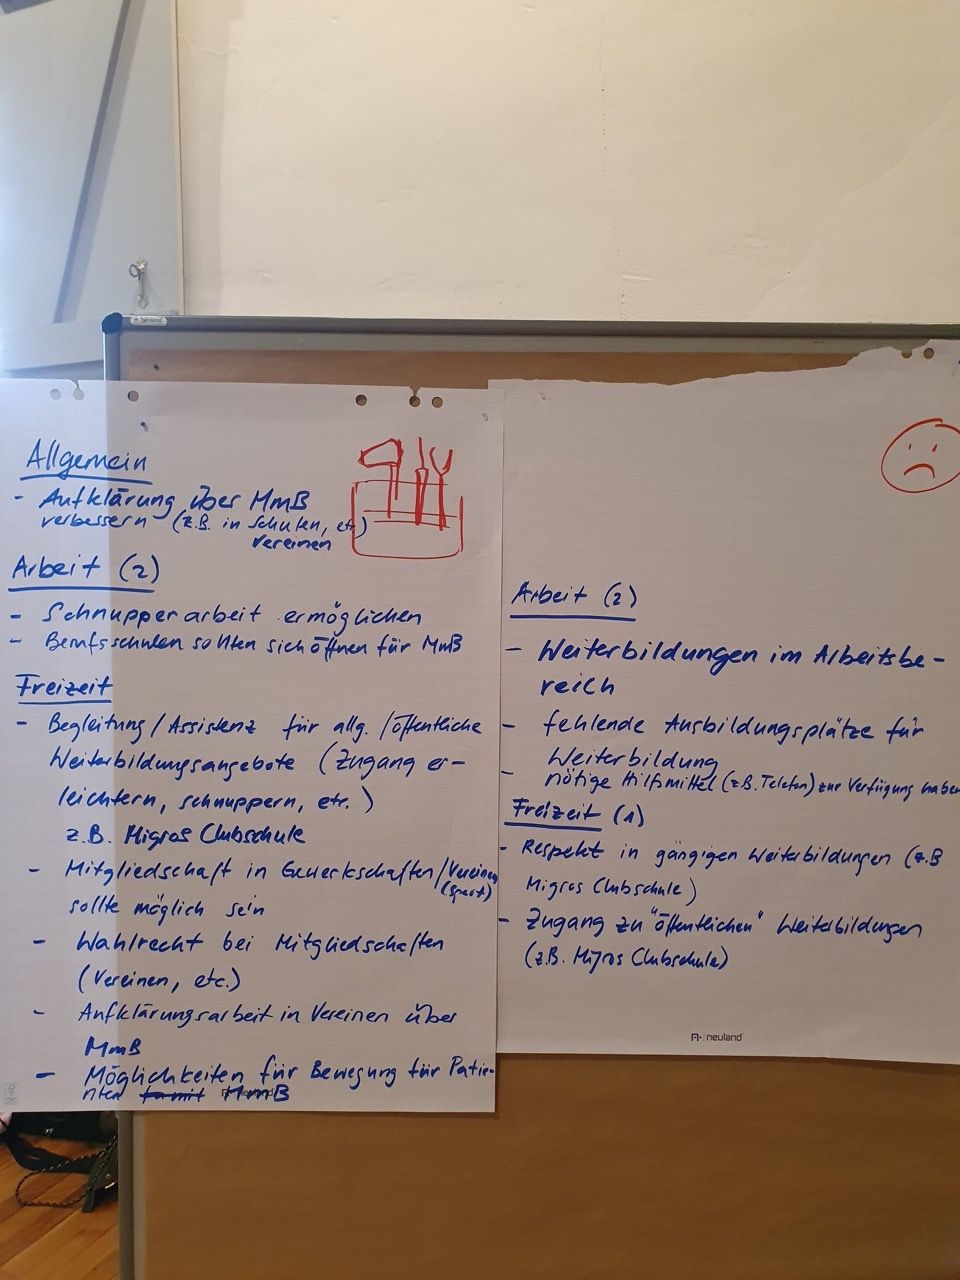 Neuland
Allgemein
- Aufklärung über MmB
verbessern (z.B. in Schulen, etc.)
Vereinen
Arbeit (2)
- Schnupperarbeit ermöglichen
- Berufsschulen sollten sich öffnen für MmB
Freizeit
- Begleitung/Assistenz für allg./öffentliche
Weiterbildungsangebote (Zugang er-
leichtern, schnuppern, etc.)
z.B. Migros Clubschule
- Mitgliedschaft in Gewerkschaften/Vereinen
(Sport)
sollte möglich sein
- Wahlrecht bei Mitgliedschaften
(Vereinen, etc.)
- Aufklärungsarbeit in Vereinen über
MmB
- Möglichkeiten für Bewegung für Patie-
nten MmB
Arbeit (2)
- Weiterbildungen im Arbeitsbe-
reich
- fehlende Ausbildungsplätze für
Weiterbildung
- nötige Hilfsmittel (z.B. Telefon) zur Verfügung haben
Freizeit (1)
- Respekt in gängigen Weiterbildungen (z.B
Migros Clubschule)
- Zugang zu "öffentlichen" Weiterbildungen
(z.B. Migros Clubschule)
neuland